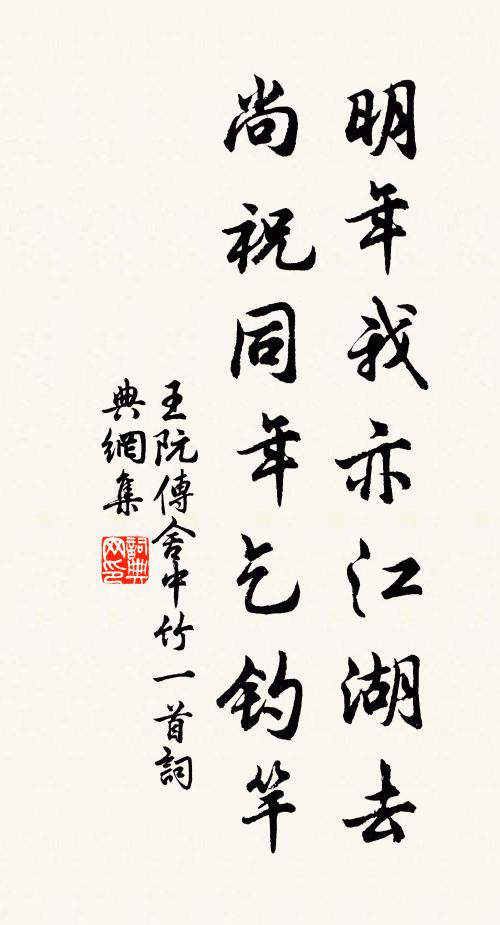 明年我亦江湖去
尚祝同年乞钓竿
王阮傳舍中竹一首詞
典網集
詞典网印